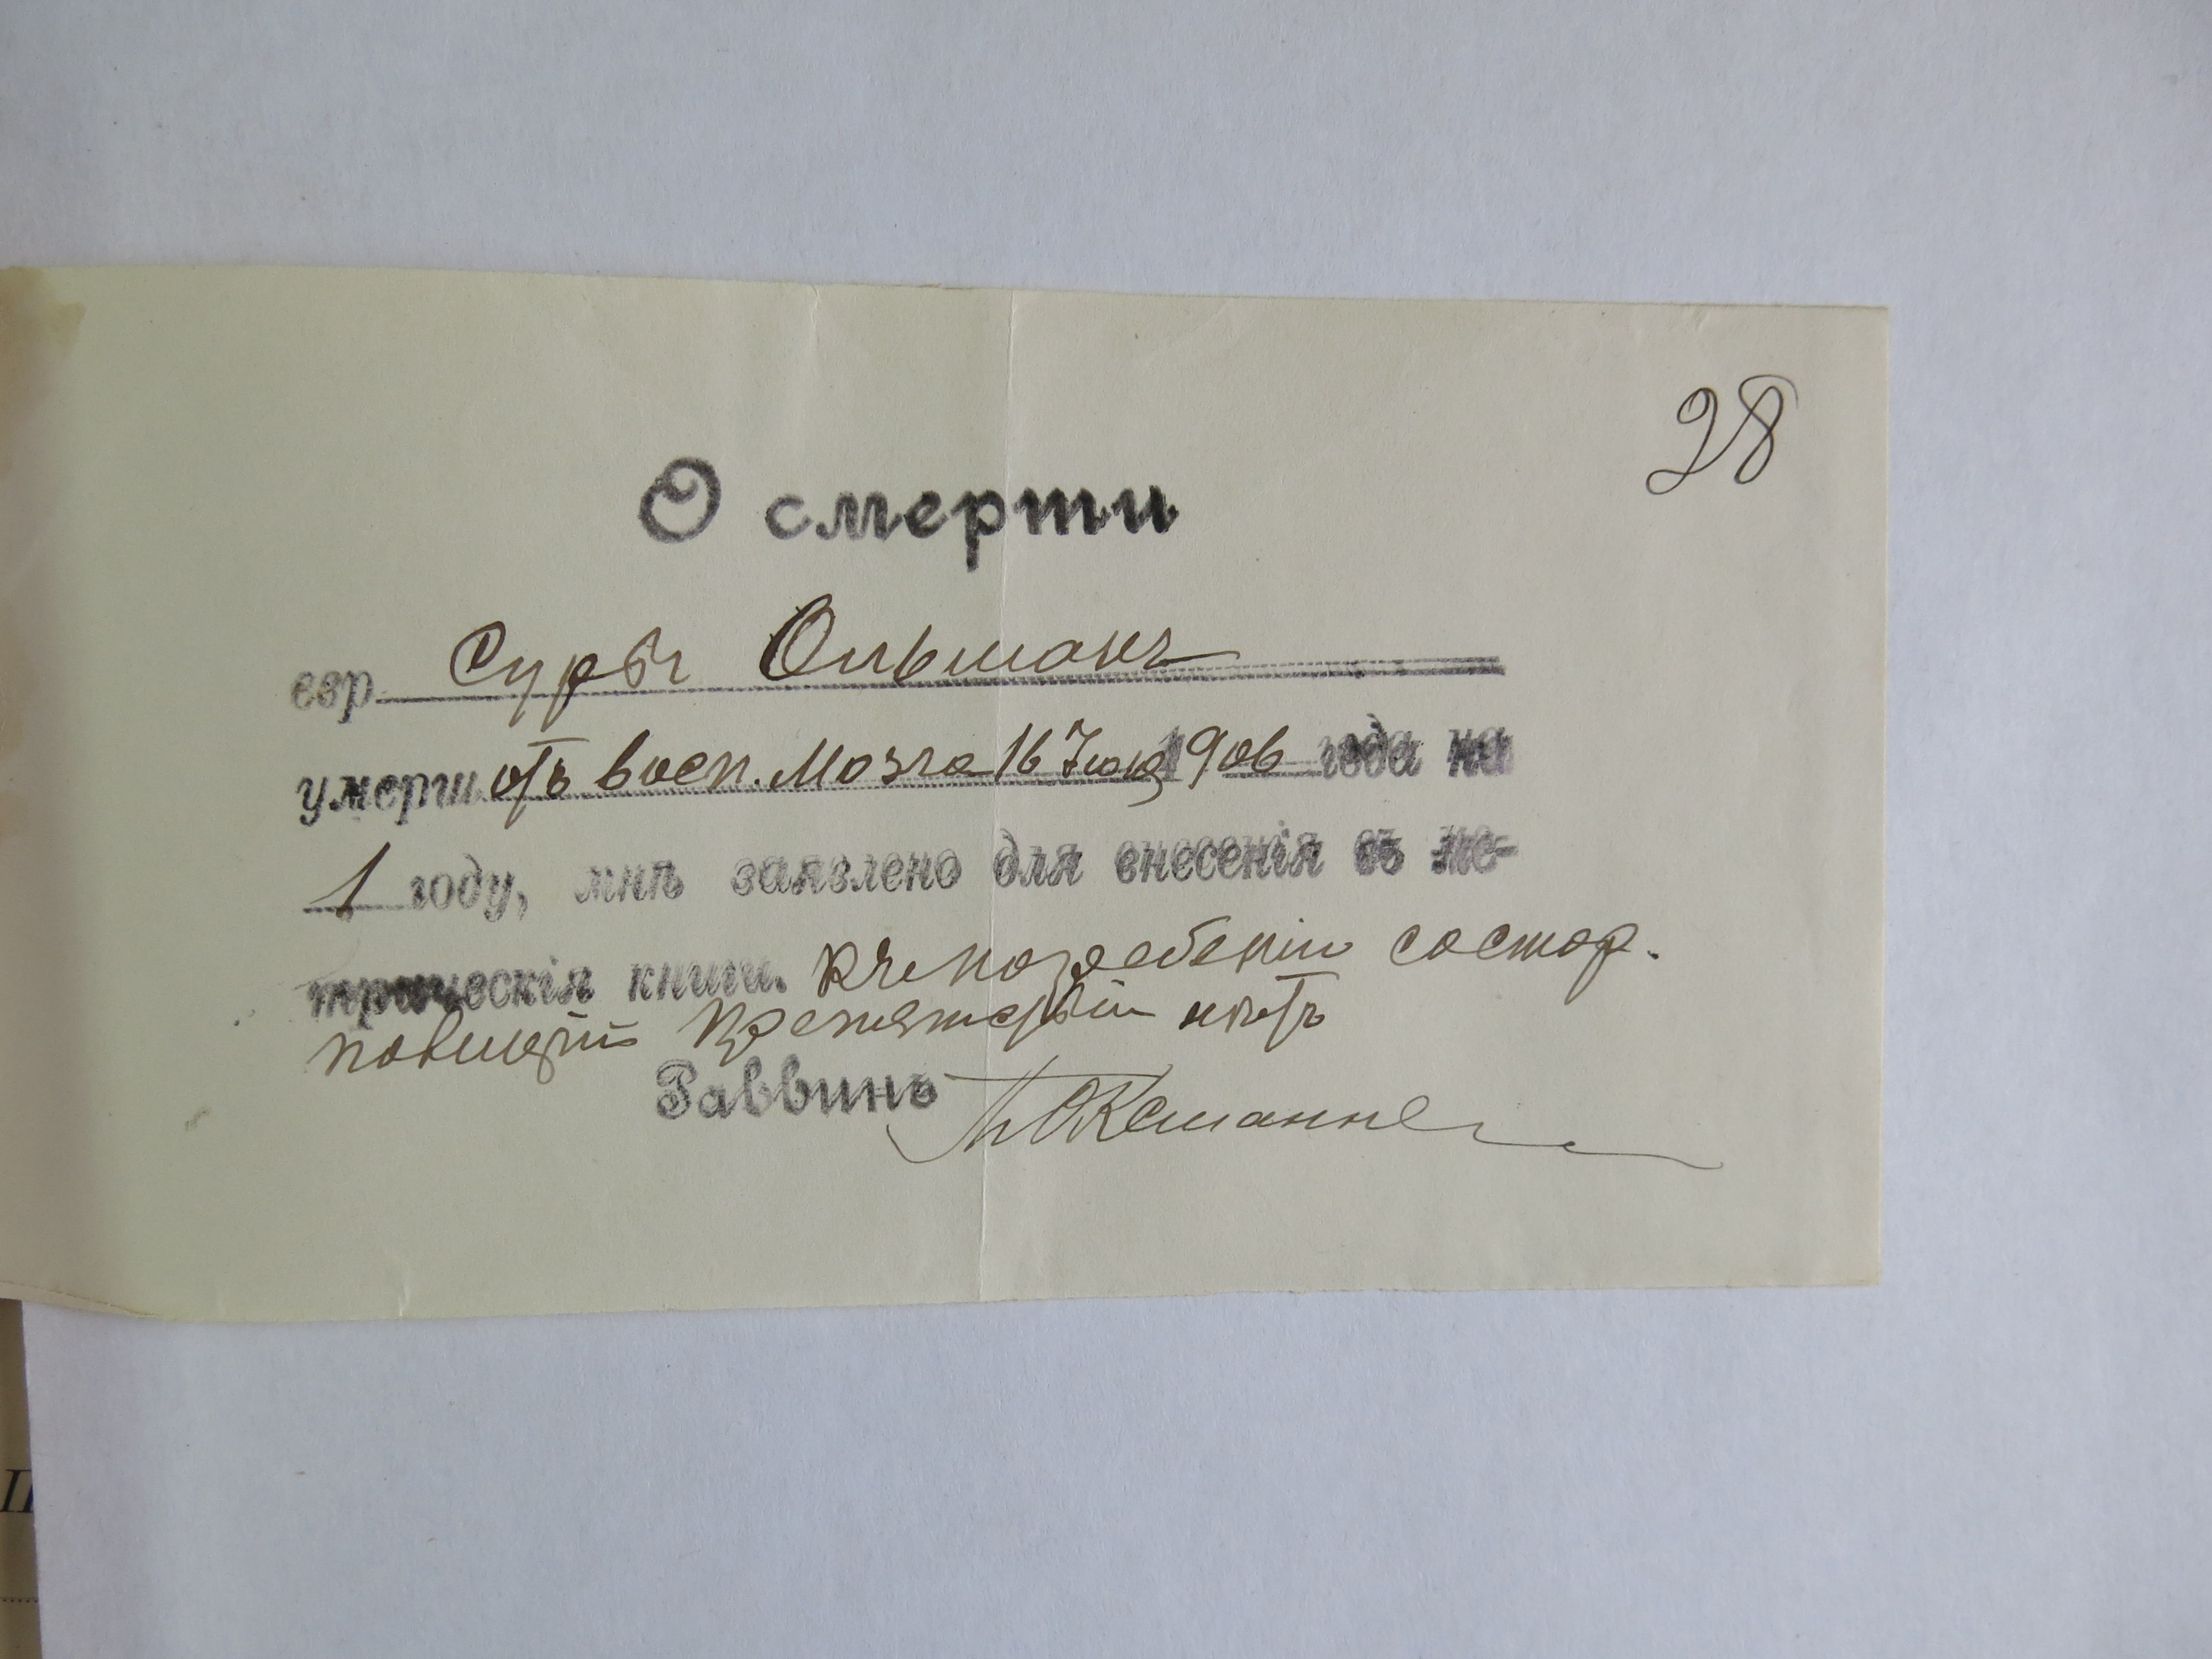 28
О смерти
евр. Суры Ольшанъ
умерш отъ восп. мозга 16 Іюля 1906 года на
1 году, мнѣ заявлено для внесенія въ ме-
трическія книги. Къ погребенію со стор.
полиціи препятствій нѣтъ
Раввинъ